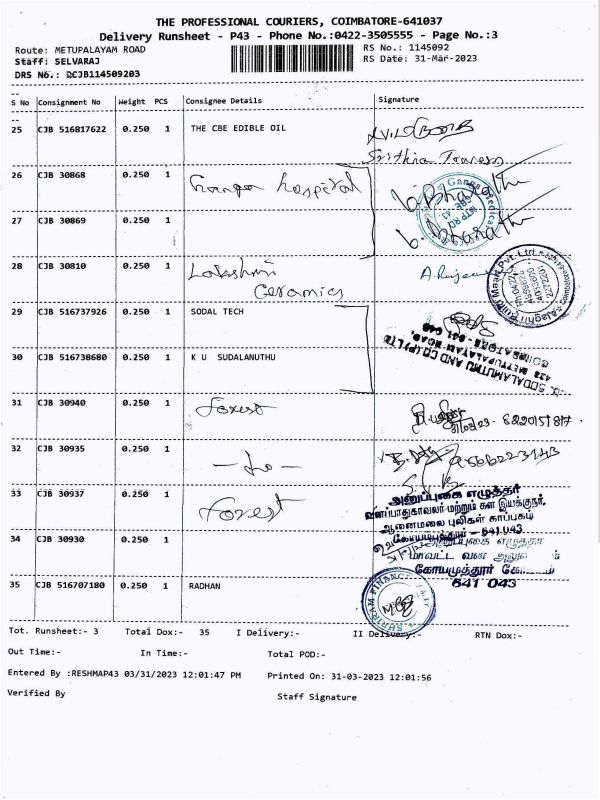 THE PROFESSIONAL COURIERS, COIMBATORE-641037
Delivery Runsheet - P43 - Phone No.:0422-3505555 - Page No.:3
Route: METUPALAYAM ROAD
RS No.: 1145092
Staff: SELVARAJ
RS Date: 31-Mar-2023
DRS No.: DCJB114509203
S No Consignment No Weight PCS Consignee Details Signature
25 CJB 516817622 0.250 1 THE CBE EDIBLE OIL
26 CJB 30868 0.250 1 Ganga hospital
27 CJB 30869 0.250 1
28 CJB 30810 0.250 1 Lakshmi
Ceramics
29 CJB 516737926 0.250 1 SODAL TECH
30 CJB 516738680 0.250 1 K U SUDALANUTHU
SODALAMUTHU AND CO (P) LTD
METTUPALAYAM ROAD,
31 CJB 30940 0.250 1 Forest
32 CJB 30935 0.250 1 - do -
33 CJB 30937 0.250 1 Forest
அனுப்புகை எழுத்தர்
வனப்பாதுகாவலர் மற்றும் கள இயக்குநர்,
ஆனைமலை புலிகள் காப்பகம்
641 043
34 CJB 30930 0.250 1
அனுப்புகை எழுத்தர்
மாவட்ட வன
கோயமுத்தூர்
641 043
35 CJB 516707180 0.250 1 RADHAN
Tot. Runsheet:- 3 Total Dox:- 35 I Delivery:- II Delivery:- RTN Dox:-
Out Time:- In Time:- Total POD:-
Entered By :RESHMAP43 03/31/2023 12:01:47 PM Printed On: 31-03-2023 12:01:56
Verified By Staff Signature